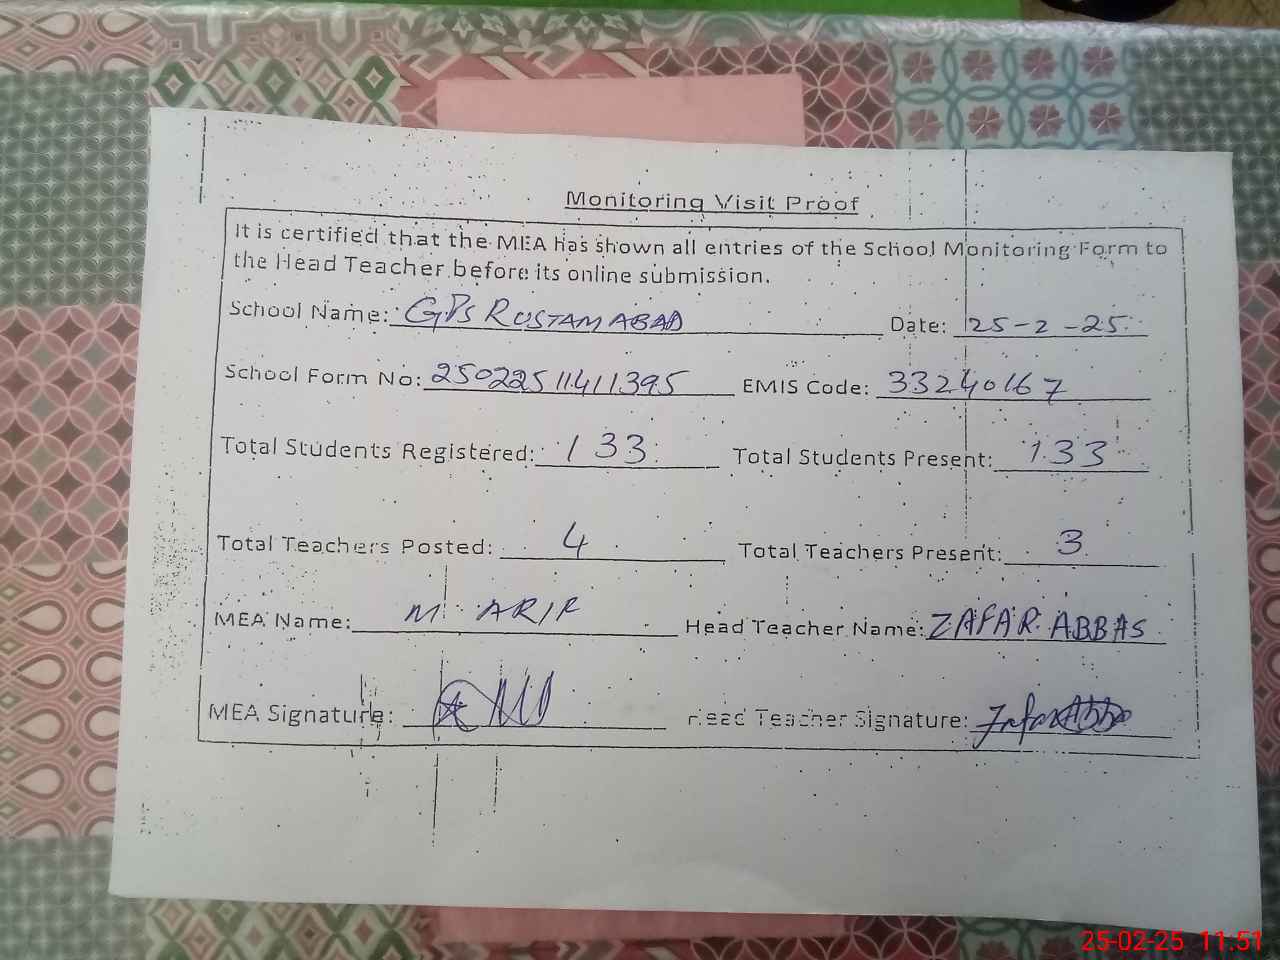 Monitoring Visit Proof
It is certified that the MEA has shown all entries of the School Monitoring Form to
the Head Teacher before its online submission.
School Name: GPS RUSTAMABAD Date: 25-2-25
School Form No: 25022511411395 EMIS Code: 33240167
Total Students Registered: 133 Total Students Present: 133
Total Teachers Posted: 4 Total Teachers Present: 3
MEA Name: M ARIF Head Teacher Name: ZAFAR ABBAS
MEA Signature: Head Teacher Signature: Zafar Abbas
25-02-25 11:51